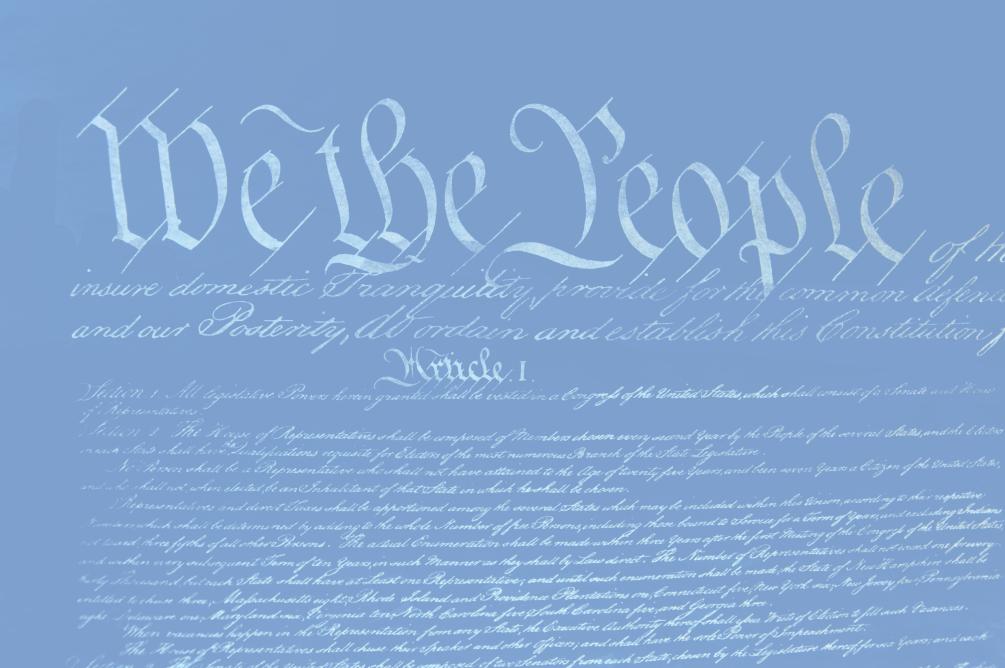 We the People of th
insure domestic Tranquility, provide for the common defence
and our Posterity, do ordain and establish this Constitution f
Article. I.
Section. 1. All legislative Powers herein granted shall be vested in a Congress of the United States, which shall consist of a Senate and House
of Representatives.
Section. 2. The House of Representatives shall be composed of Members chosen every second Year by the People of the several States, and the Electors
in each State shall have Qualifications requisite for Electors of the most numerous Branch of the State Legislature.
No Person shall be a Representative who shall not have attained to the Age of twenty five Years, and been seven Years a Citizen of the United States,
and who shall not, when elected, be an Inhabitant of that State in which he shall be chosen.
Representatives and direct Taxes shall be apportioned among the several States which may be included within this Union, according to their respective
Numbers, which shall be determined by adding to the whole Number of free Persons, including those bound to Service for a Term of Years, and excluding Indians
not taxed, three fifths of all other Persons. The actual Enumeration shall be made within three Years after the first Meeting of the Congress of the United States,
and within every subsequent Term of ten Years, in such Manner as they shall by Law direct. The Number of Representatives shall not exceed one for every
thirty Thousand, but each State shall have at Least one Representative; and until such enumeration shall be made, the State of New Hampshire shall be
entitled to chuse three, Massachusetts eight, Rhode Island and Providence Plantations one, Connecticut five, New York six, New Jersey four, Pennsylvania
eight, Delaware one, Maryland six, Virginia ten, North Carolina five, South Carolina five, and Georgia three.
When vacancies happen in the Representation from any State, the Executive Authority thereof shall issue Writs of Election to fill such Vacancies.
The House of Representatives shall chuse their Speaker and other Officers; and shall have the sole Power of Impeachment.
of the United States shall be composed of two Senators from each State, chosen by the Legislature thereof, for six Years; and each